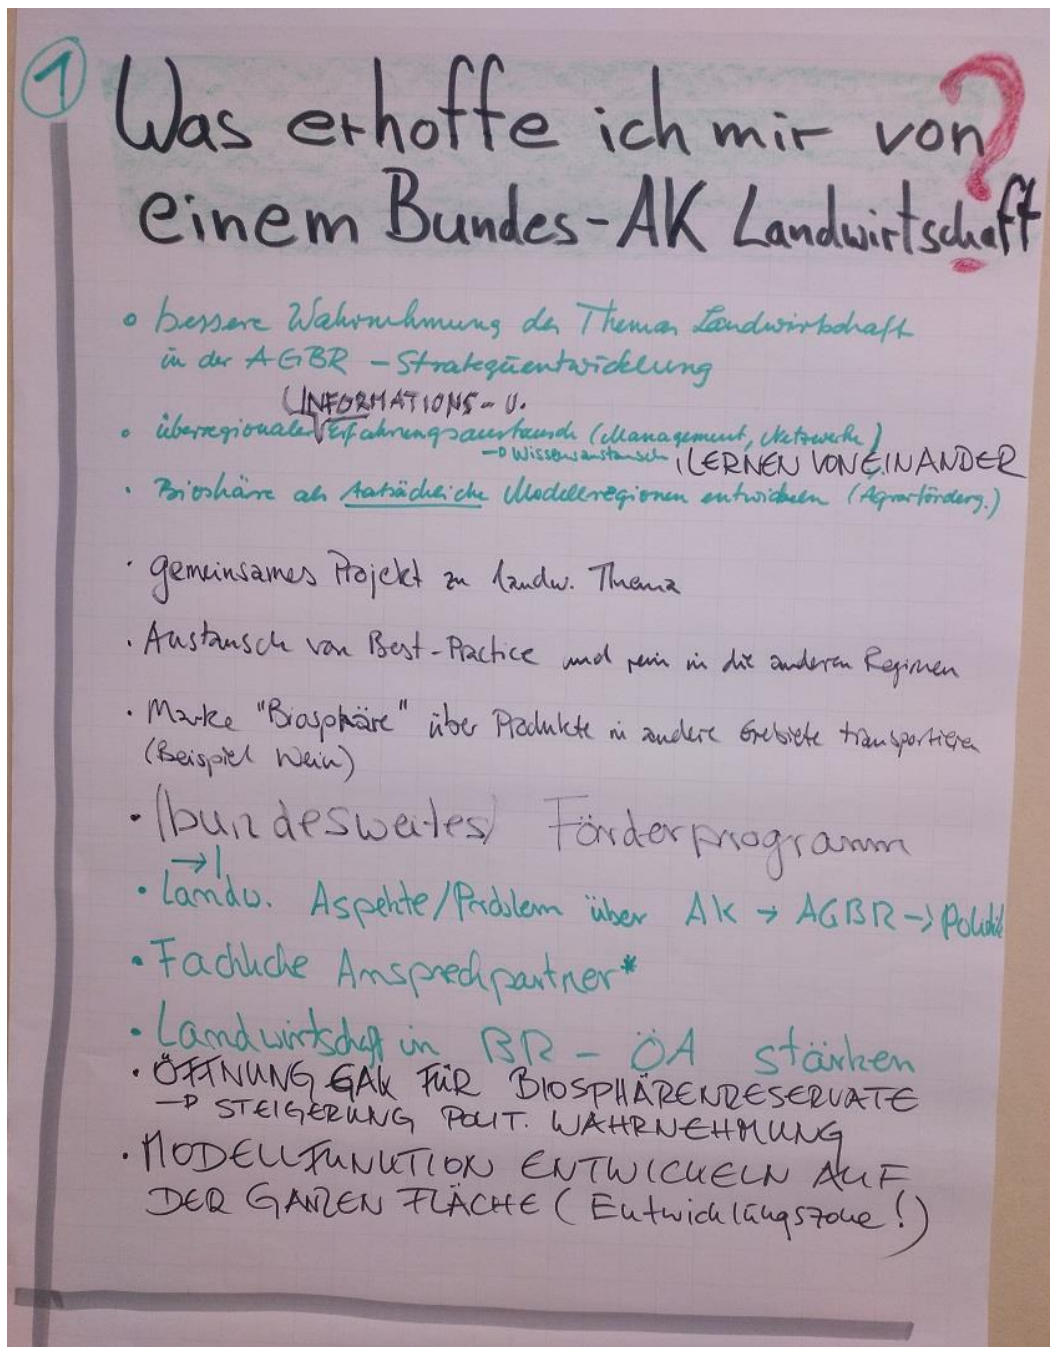 1
Was erhoffe ich mir von
einem Bundes-AK Landwirtschaft?
bessere Wahrnehmung des Themas Landwirtschaft
in der AGBR - Strategieentwicklung
INFORMATIONS- U.
• überregionaler Erfahrungsaustausch (Management, Netzwerke)
→ Wissensaustausch, LERNEN VONEINANDER
• Bioshäre als tatsächliche Modellregionen entwickeln (Agrarförderg.)
• gemeinsames Projekt zu landw. Thema
• Austausch von Best-Practice und rein in die anderen Regionen
• Marke "Biosphäre" über Produkte in andere Gebiete transportieren
(Beispiel Wein)
• (bundesweites) Förderprogramm
→
• Landw. Aspekte/Problem über AK → AGBR → Politik
• Fachliche Ansprechpartner*
• Landwirtschaft in BR - ÖA stärken
• ÖFFNUNG GAK FÜR BIOSPHÄRENRESERVATE
→ STEIGERUNG POLIT. WAHRNEHMUNG
• MODELLFUNKTION ENTWICKELN AUF
DER GANZEN FLÄCHE (Entwicklungszone!)